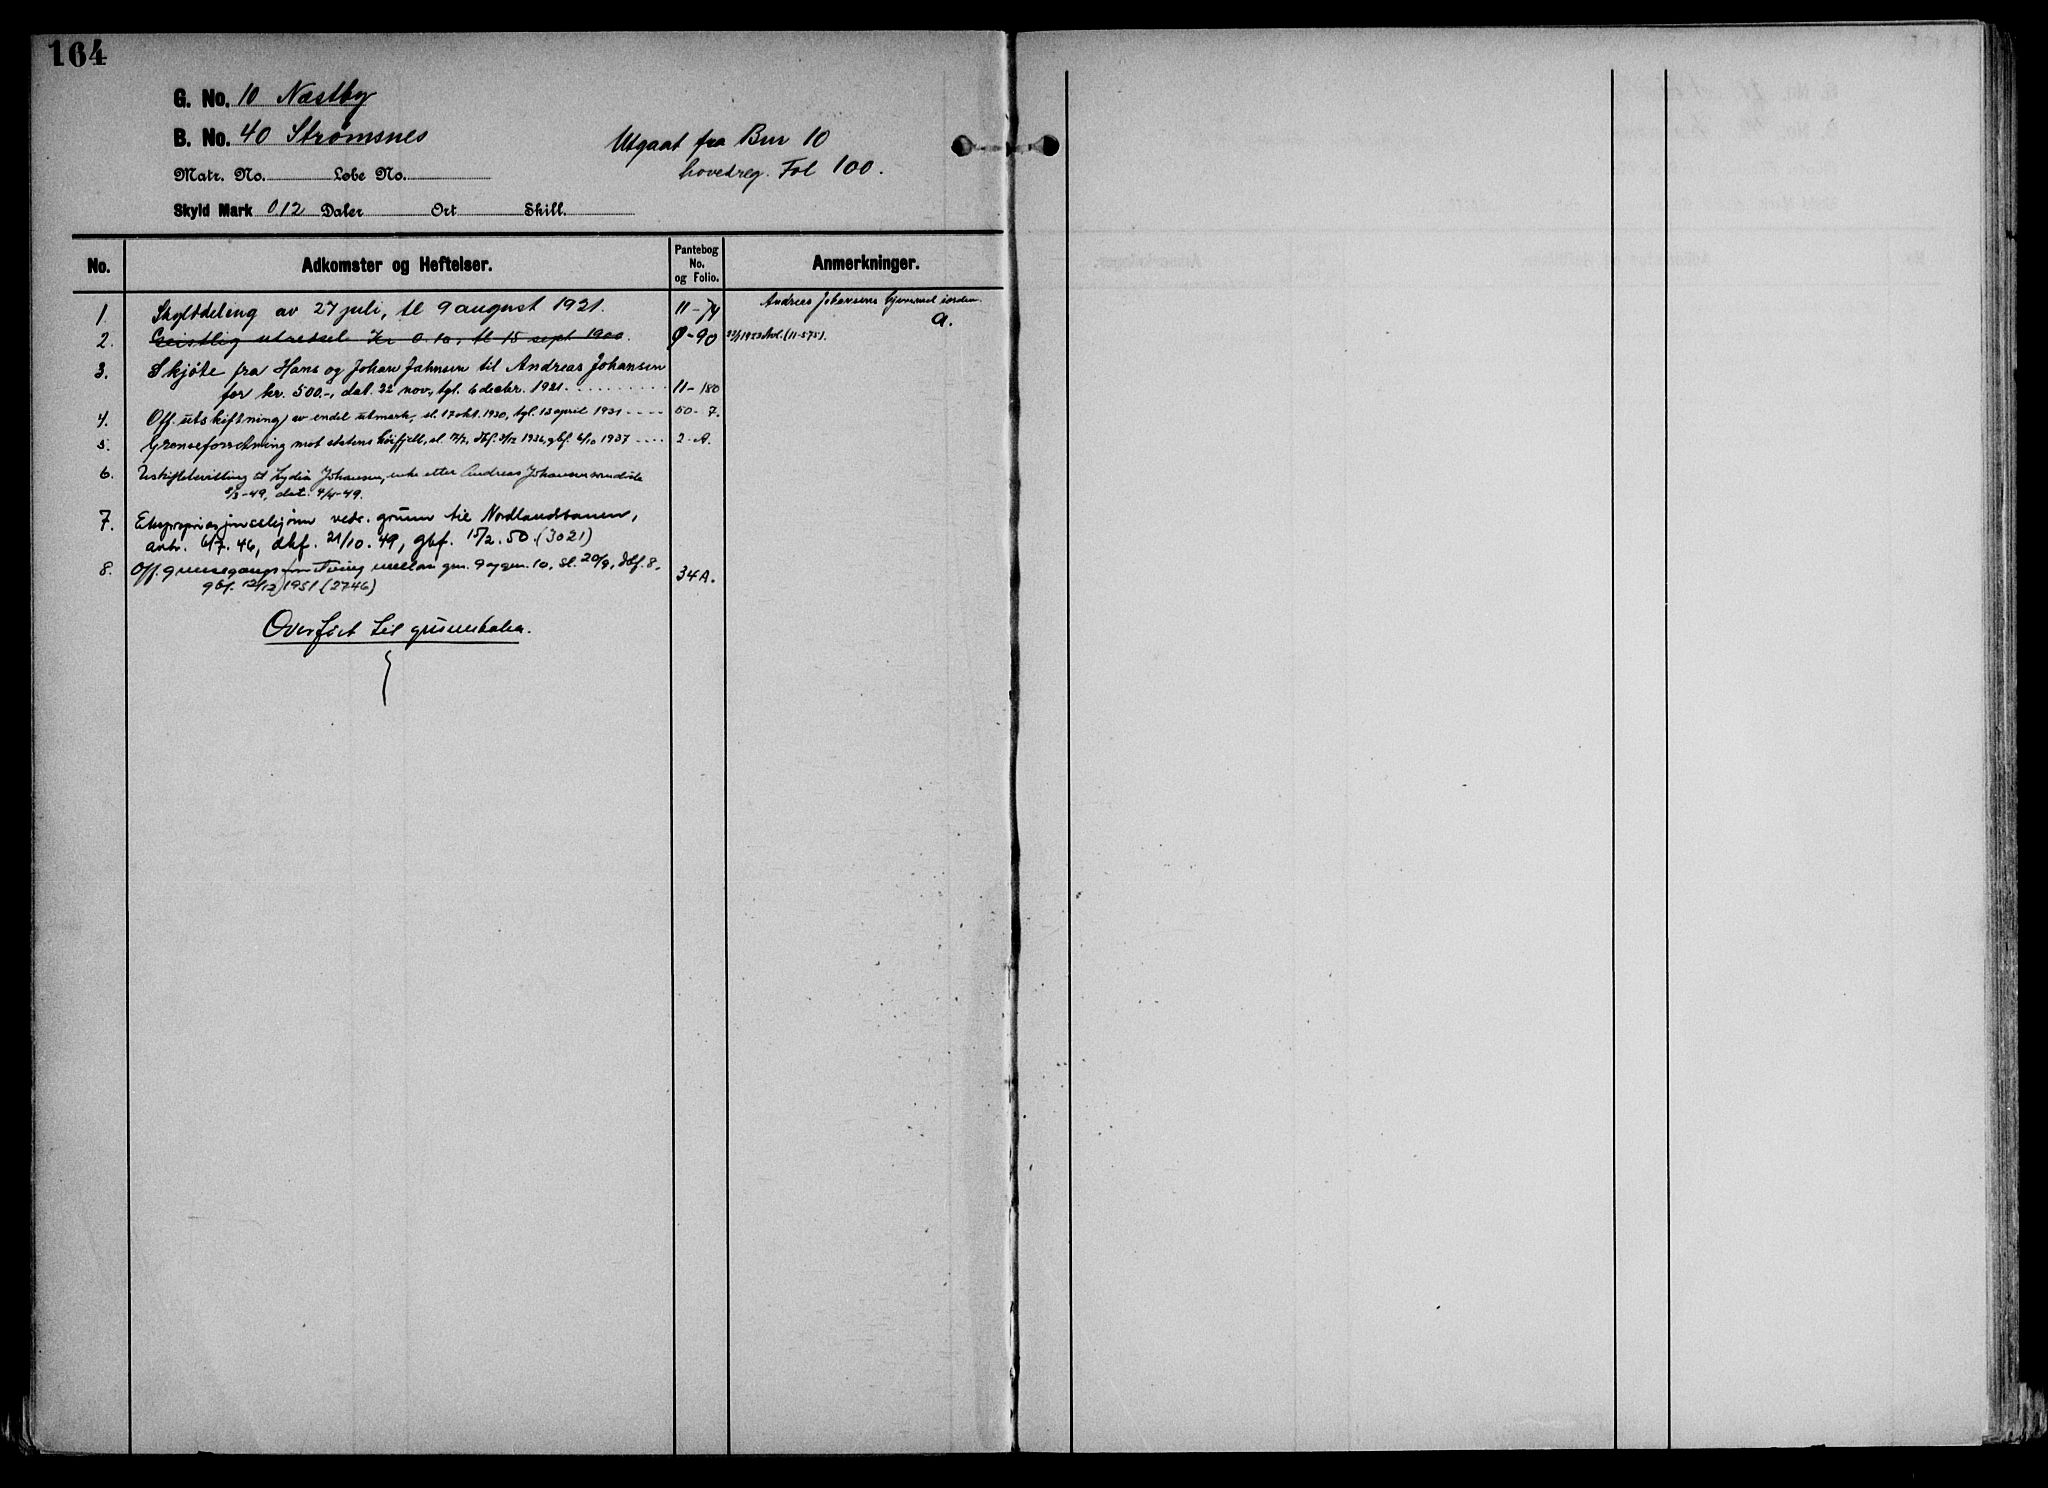 164
G. No. 10 Næstby
B. No. 40 Strømsnes
Utgaat fra Bnr 10
hovedreg. Fol 100.
Matr. No. Løbe No.
Skyld Mark 0 12 Daler Ort Skill.
No. Adkomster og Heftelser. Pantebog No. og Folio. Anmerkninger.
1. Skylddeling av 27 juli, tl 9 august 1921. 11-74 Andreas Johansens hjemmel i orden.
a.
2. Geistlig utredsel Kr 0.10, tl 15 sept 1900. 9-90 1923 (11-575).
3. Skjøte fra Hans og Johan Jahnsen til Andreas Johansen
for kr. 500.-, dat. 22 nov., tgl. 6 decbr. 1921. 11-180
4. Off. utskiftning av endel utmark, sl. 17 okt. 1930, tgl. 13 april 1931 50-7.
5. Grenseforretning mot statens høifjell, sl. 17/7, dbf. 3/12 1936, gbf. 6/10 1937 2-A.
6. Uskiftebevilling til Lydia Johansen, enke etter Andreas Johansen
5/3-49, dat. 4/4-49.
7. Ekspropriasjonsskjønn vedr. grunn til Nordlandsbanen,
avbr. 6/7.46, dkf. 21/10.49, gbf. 15/2.50. (3021)
8. Off. grensegangsforretning mellom gnr. 9 og gnr. 10, sl. 20/9, dbf. 8, 34A.
gbf. 12/12 1951 (2746)
Overført til grunnboka.